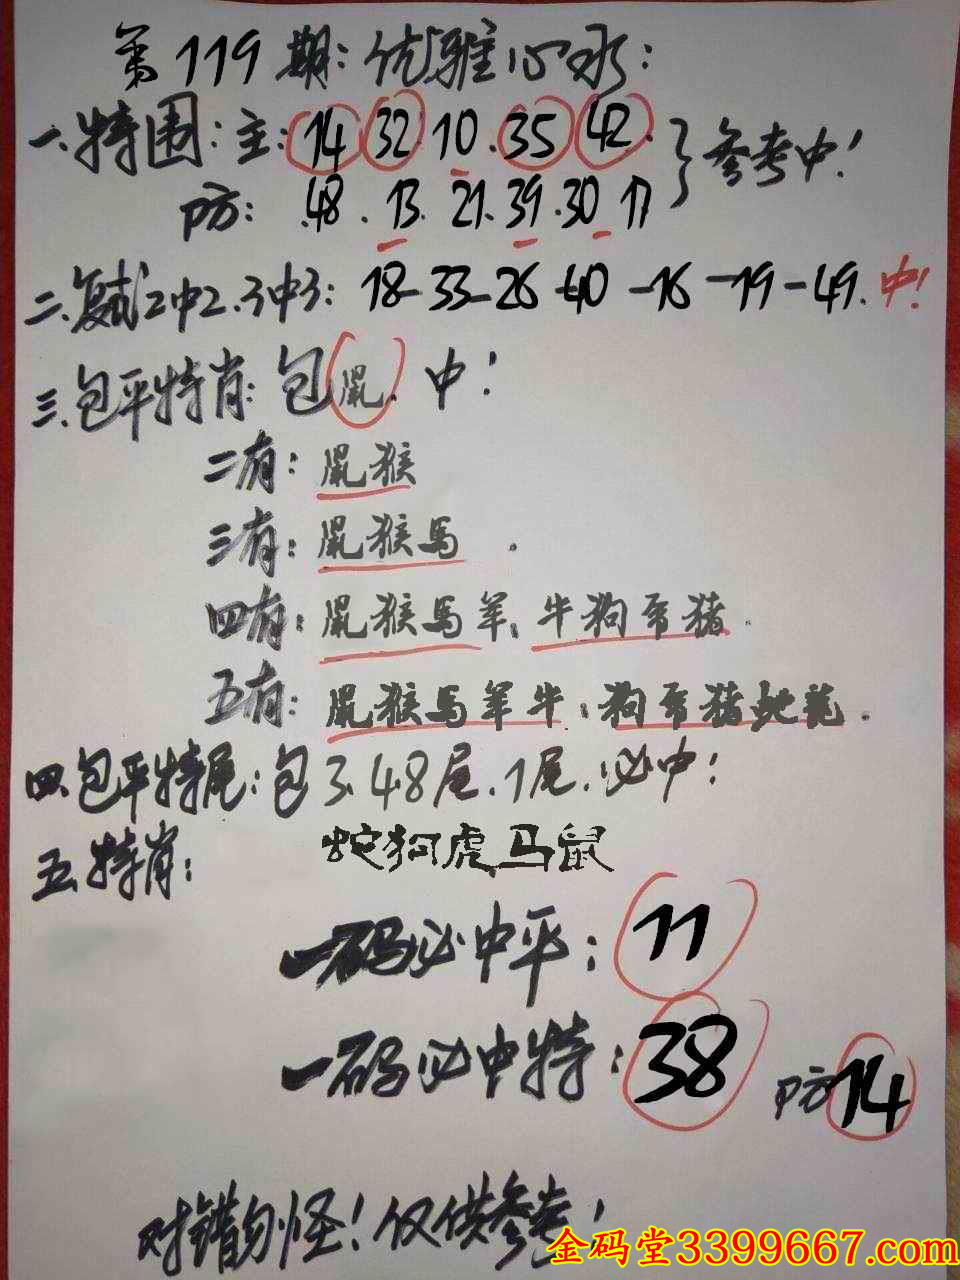 第119期:优雅心水:
一.特围:主:14.32.10.35.42.
防:48.13.21.39.30.17
}参考中!
二.复式2中2.3中3:18-33-26-40-16-19-49.中!
三.包平特肖:包鼠.中!
二有:鼠猴
三有:鼠猴馬.
四有:鼠猴馬羊、牛狗兔猪.
五有:鼠猴馬羊牛:狗兔猪蛇龙.
四.包平特尾:包3.48尾.1尾.必中!
五.特肖:蛇狗虎马鼠
一码必中平:11
一码必中特:38 防14
对错勿怪!仅供参考!
金码堂3399667.com